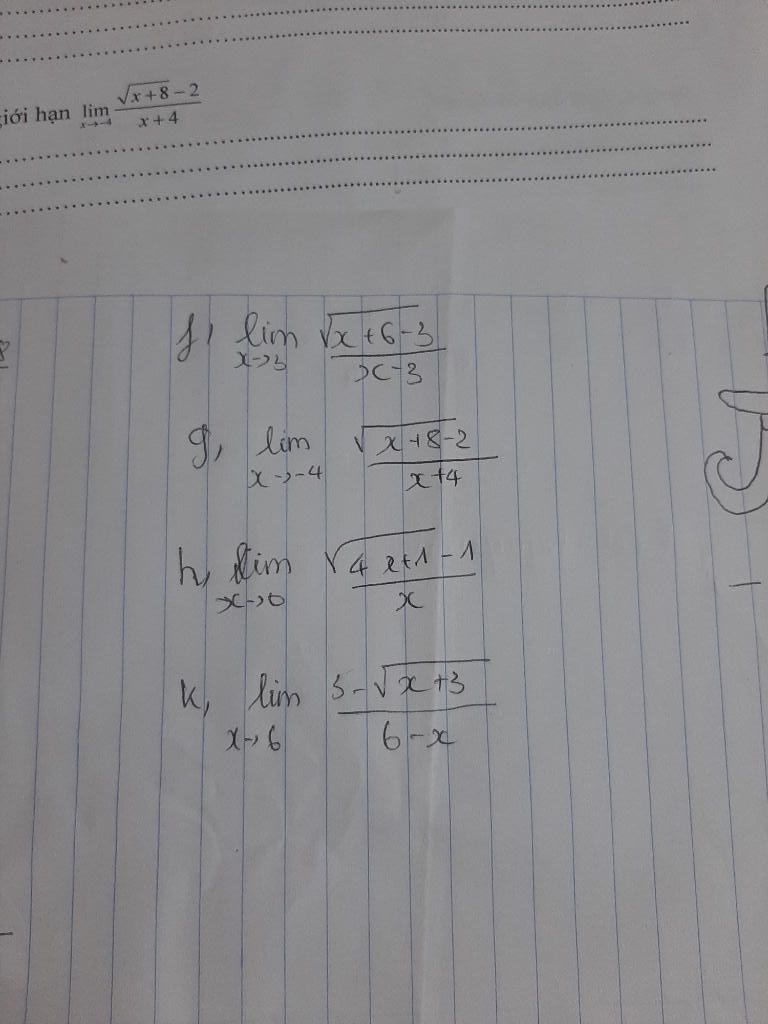 giới hạn lim x→-4 (√(x+8) - 2)/(x+4)
f, lim x→3 (√(x+6-3))/(x-3)
g, lim x→-4 (√(x+8)-2)/(x+4)
h, lim x→0 (√(4x+1) - 1)/x
k, lim x→6 (3-√(x+3))/(6-x)